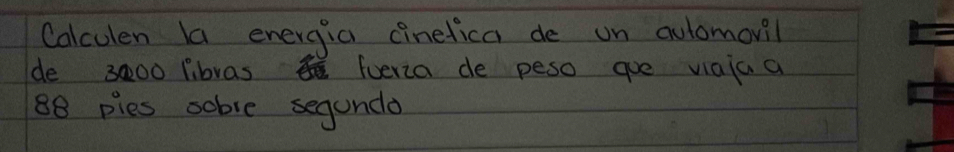 Calculen la energia cinetica de un automovil
de 3200 libras fuerza de peso que viaja a
88 pies sobre segundo